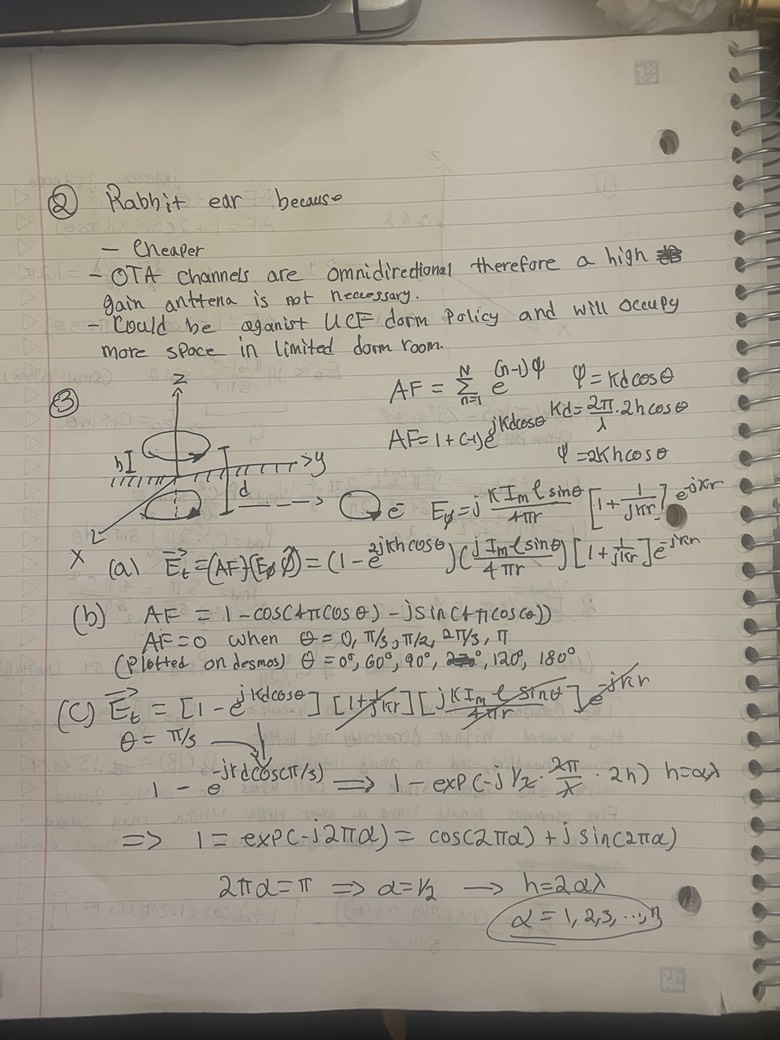 ② Rabbit ear because
- Cheaper
- OTA channels are omnidirectional therefore a high
gain anttena is not neccessary.
- Could be aganist UCF dorm policy and will occupy
more space in limited dorm room.
③
AF = Σ_{n=1}^{N} e^{(n-1)ψ} ψ = kd cosθ
AF = 1 + (-1)e^{jkdcosθ} kd = 2π/λ · 2h cosθ
ψ = 2kh cosθ
z
h
y
d
x
e⁻ E_ø = j kI_m l sinθ / 4πr [1 + 1/jkr] e^{-jkr}
(a) E_t = (AF)(E_ø ø̂) = (1 - e^{2jkh cosθ})(j I_m l sinθ / 4πr)[1 + 1/jkr] e^{-jkr}
(b) AF = 1 - cos(4π cosθ) - j sin(4π cosθ))
AF = 0 when θ = 0, π/3, π/2, 2π/3, π
(plotted on desmos) θ = 0°, 60°, 90°, 120°, 180°
(c) E_t = [1 - e^{jkdcosθ}] [1 + 1/jkr] [j kI_m l sinθ / 4πr] e^{-jkr}
θ = π/3
1 - e^{-jkd(cos(π/3))} ⟹ 1 - exp(-j 1/2 · 2π/λ · 2h) h = αλ
⟹ 1 = exp(-j2πα) = cos(2πα) + j sin(2πα)
2πα = π ⟹ α = 1/2 → h = 2αλ
α = 1, 2, 3, ..., n